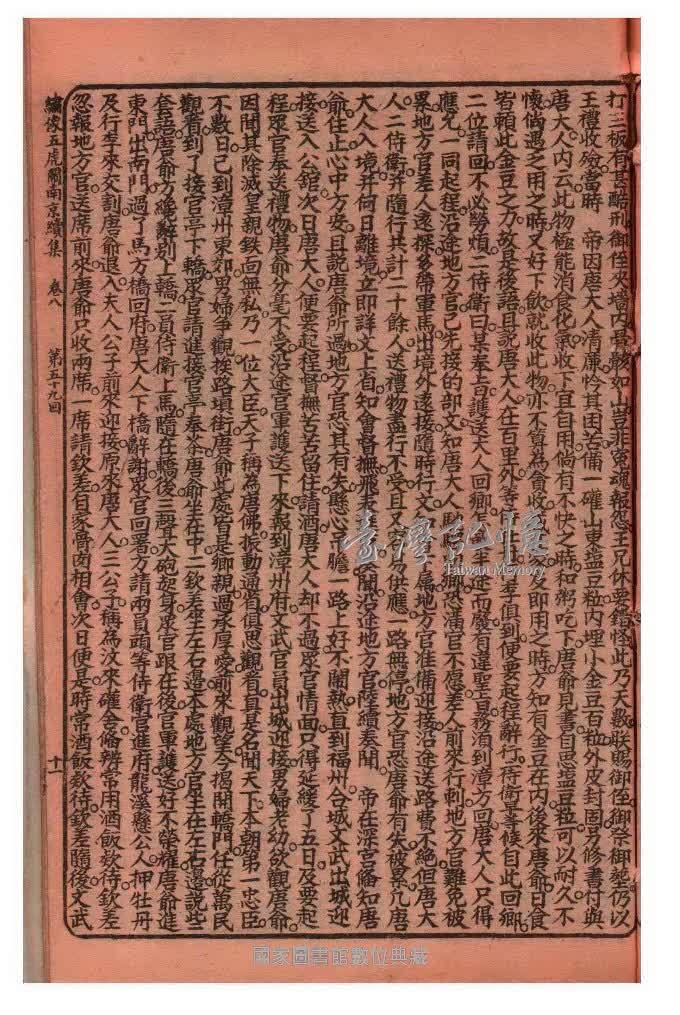 打三板有甚酷刑御侄夾墻內骨骸如山豈非冤魂報怨王兄休要錯怪此乃天數朕賜御侄御祭御塟仍以
王禮收殮當時　帝因唐大人清廉怜其困苦備一礶山東塩豆粒內埋小金豆百粒外皮封固另修書付與
唐大人內云此物極能消食化氣收下宜自用倘有不快之時和粥吃下唐爺見書自思塩豆粒可以耐久不
懷倘遇之用之時又好下飲就收此物亦不算為會收即用之時方知有金豆在內後來唐爺日食
皆賴此金豆之力故是後語且説唐大人在百里外等李俱到便要起程辭行侍衛曼候自此回鄉
二位請回不必勞煩二侍衛曰某奉旨護送大人回鄉半途而廢有違聖旨務須到漳方回唐大人只得
應允一同起程沿途地方官已先接的部文知唐大人鄉恐滿官不愿差人前來行刺地方官難免被
累地方官差人遠探多帶軍馬出境外遠接隨時行文屬地方官准備迎接沿途送路費不絕但唐大
人二侍衛并隨行共計二十餘人送禮物盖行不受且又容易供應一路無停地方官恐唐爺有失被累凡唐
大人入境并何日離境立即詳文上省知會督撫飛奏聞沿途地方官陸續奏聞　帝在深宮俻知唐
爺住止心中方安且説唐爺所過地方官恐其有失懸心吊膽一路上好不鬧熱直到福州合城文武出城迎
接送入公舘次日唐大人便要起程督撫苦苦留住請酒唐大人却不過眾官情面只得延緩了五日及要起
程眾官奉送禮物唐爺分毫不受沿途官軍護送下來報到漳州府文武官員出城迎接男婦老幼欲觀唐爺
因聞其除滅皇親鉄面無私乃一位大臣天子稱為唐佛振動通省俱思觀看真是名聞天下本朝第一忠臣
不數日已到漳州東郊男婦爭觀挨路塡街唐爺此處皆是鄉親過承厚愛前來觀望今揭開轎門任從萬民
觀看到了接官亭下轎眾官請進接官亭奉茶唐爺坐在中二欽差坐左右邊本處地方官坐在左右邊說些
套語唐爺方纔辭別上轎二員侍衛上馬隨在轎後三聲大砲起身眾官跟在後官軍護送好不榮耀唐爺進
東門出南門過了馬方橋回府唐大人下橋辭謝眾官回署方請兩員頭等侍衛官進府龍溪縣公人押牡丹
及行李來交割唐爺退入夫人公子前來迎接原來唐大人三公子稱為汶來礶舍俻辨常用酒飯欵待欽差
忽報地方官送席前來唐爺只收兩席一席請欽差自家骨肉相會次日便是時常酒飯欵待欽差隨後文武
繡像五虎鬧南京續集　卷八　第五十九回　十一
臺灣記憶
Taiwan Memory
國家圖書館數位典藏